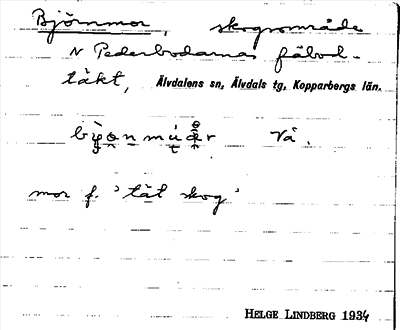 Björnmor, skogsområde
N Pederbodarnas fäbod-
täkt, Älvdalens sn, Älvdals tg, Kopparbergs län.
Vå.
mor f. 'tät skog'
HELGE LINDBERG 1934